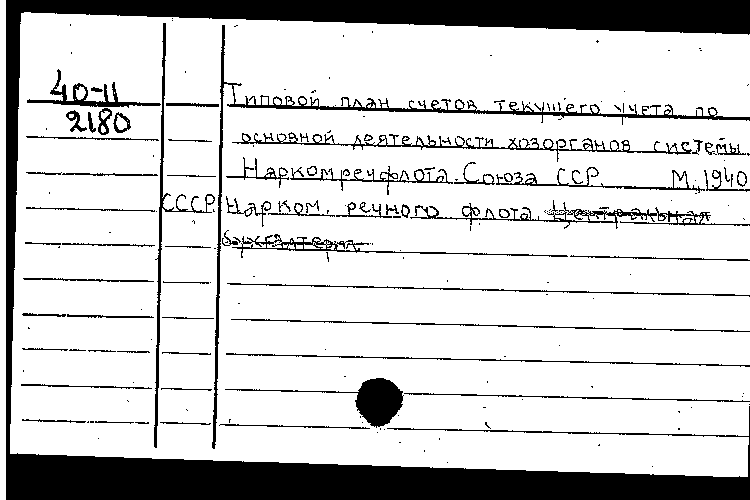 40-11
2180
Типовой план счетов текущего учета по
основной деятельности хозорганов системы
Наркомречфлота Союза ССР. М., 1940
СССР. Нарком. речного флота. Центральная
бухгалтерия.